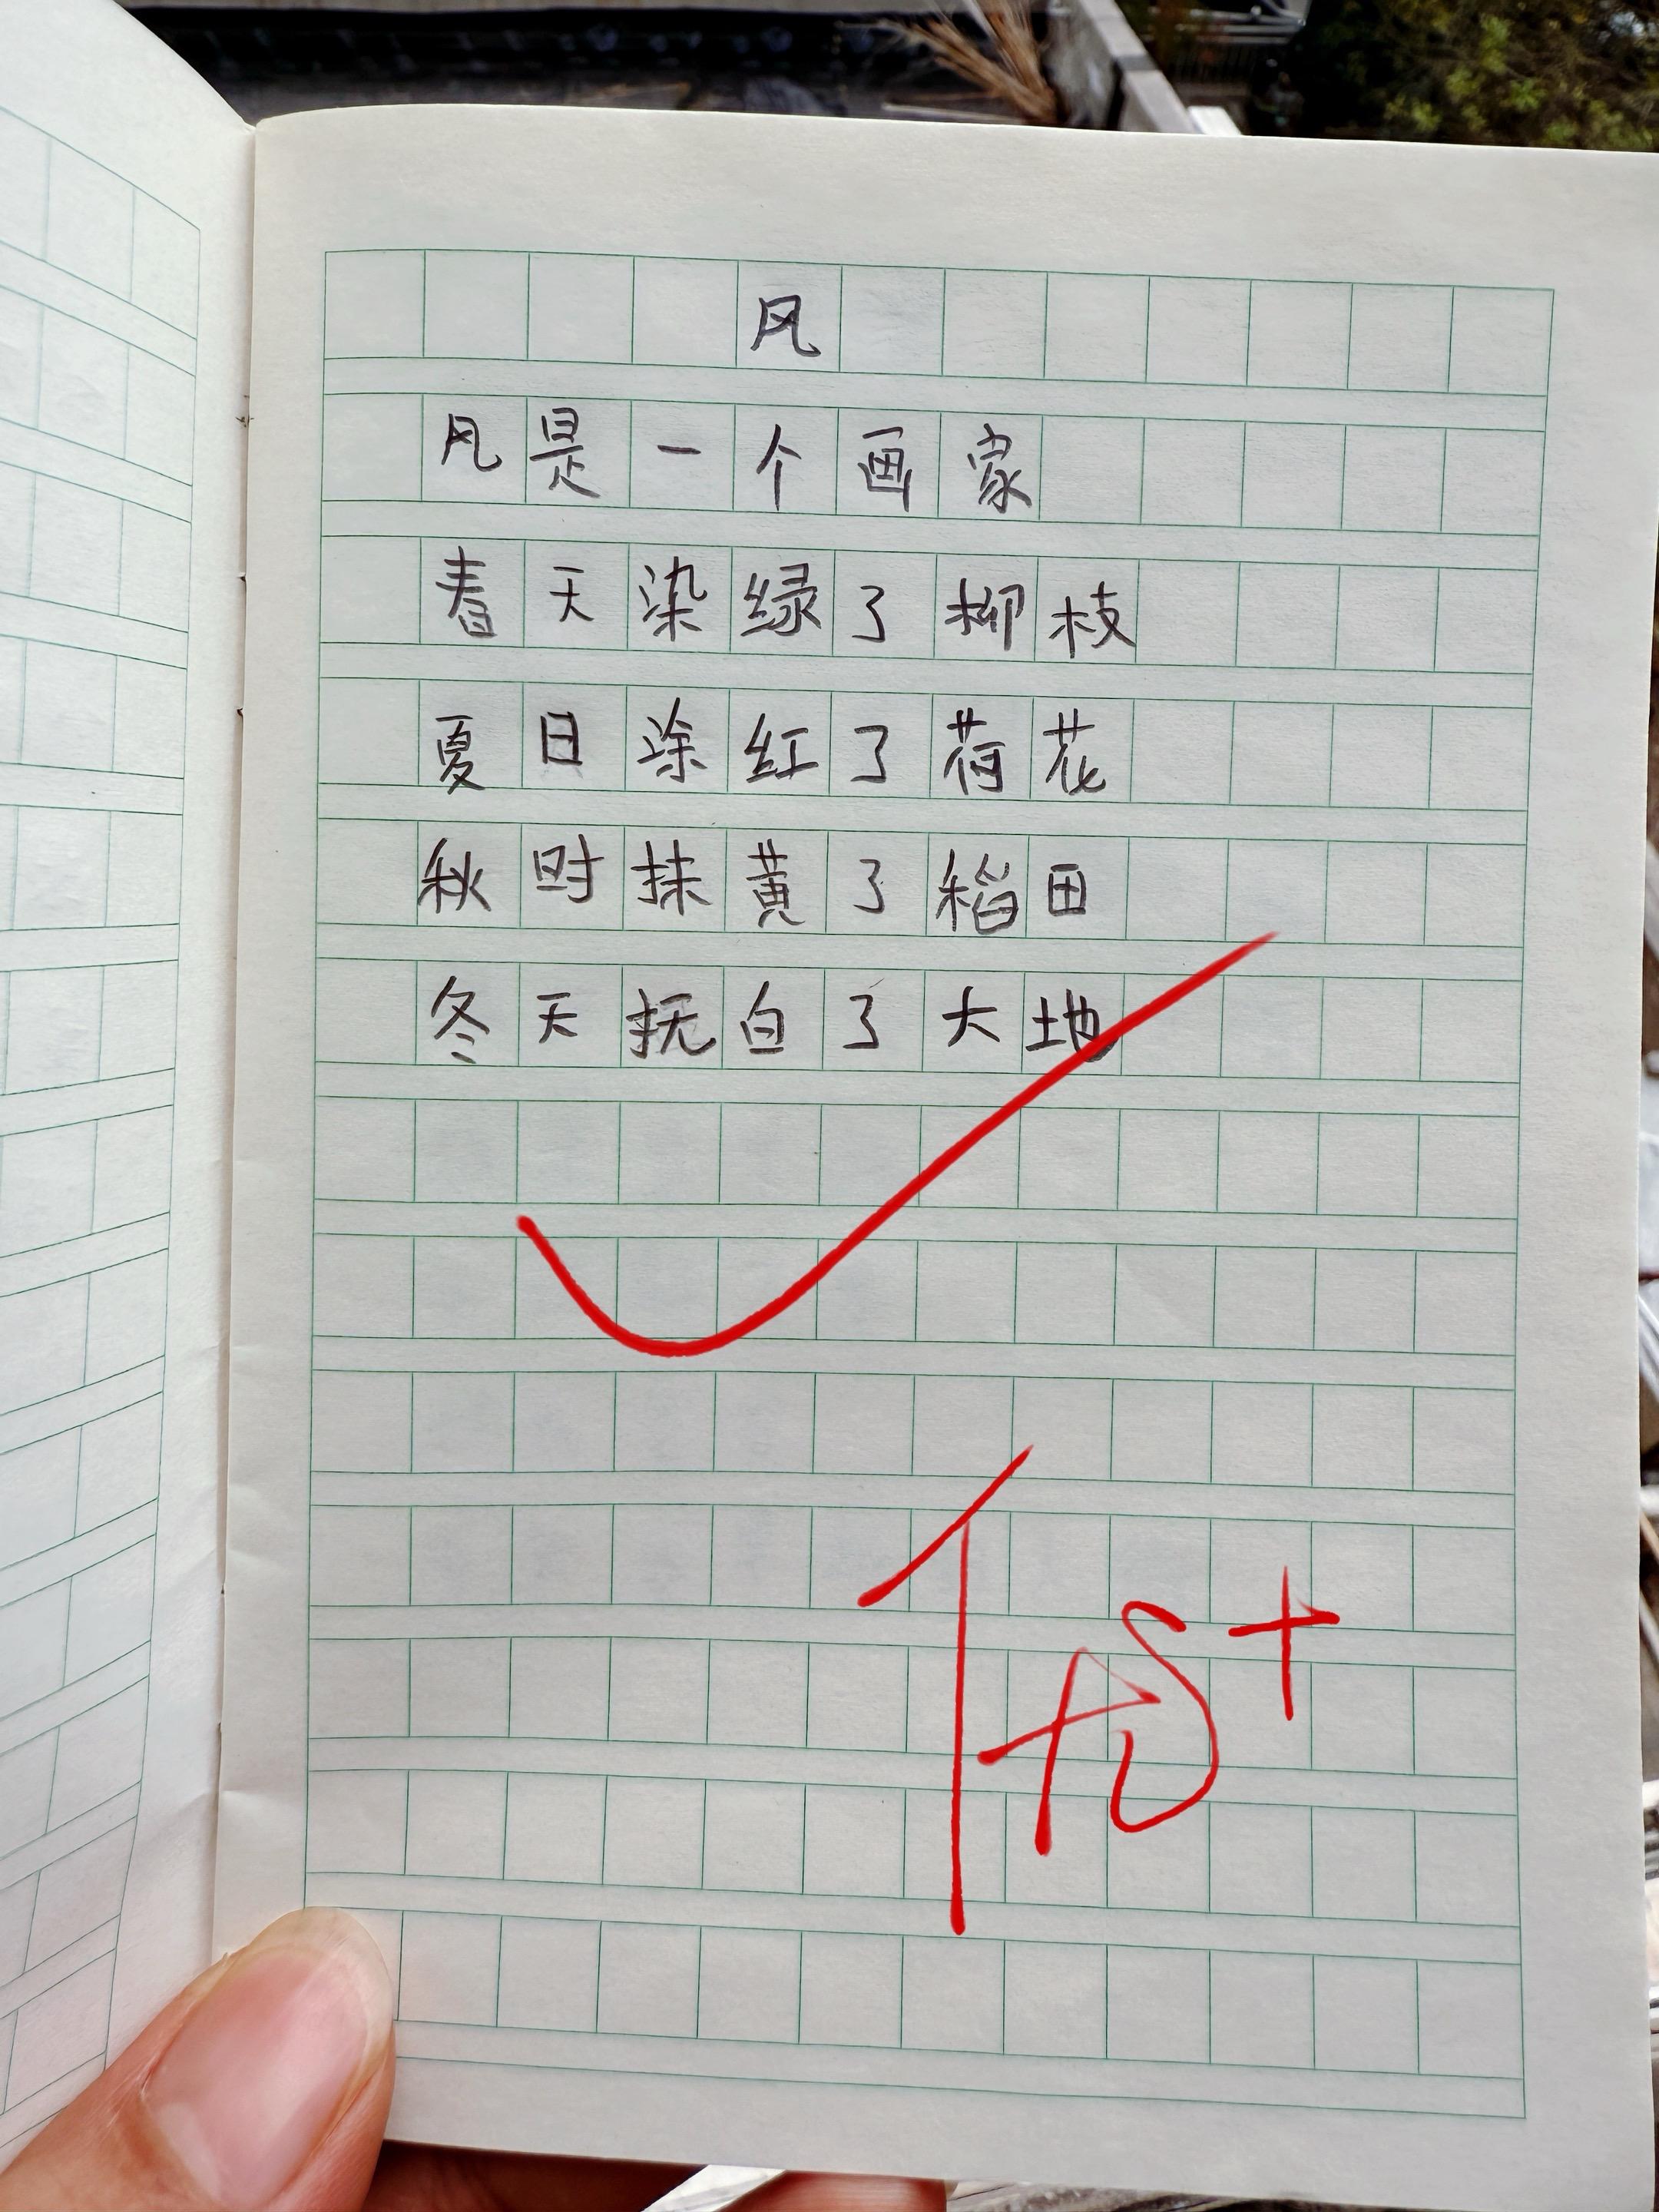 风
风是一个画家
春天染绿了柳枝
夏日涂红了荷花
秋时抹黄了稻田
冬天抚白了大地
优+